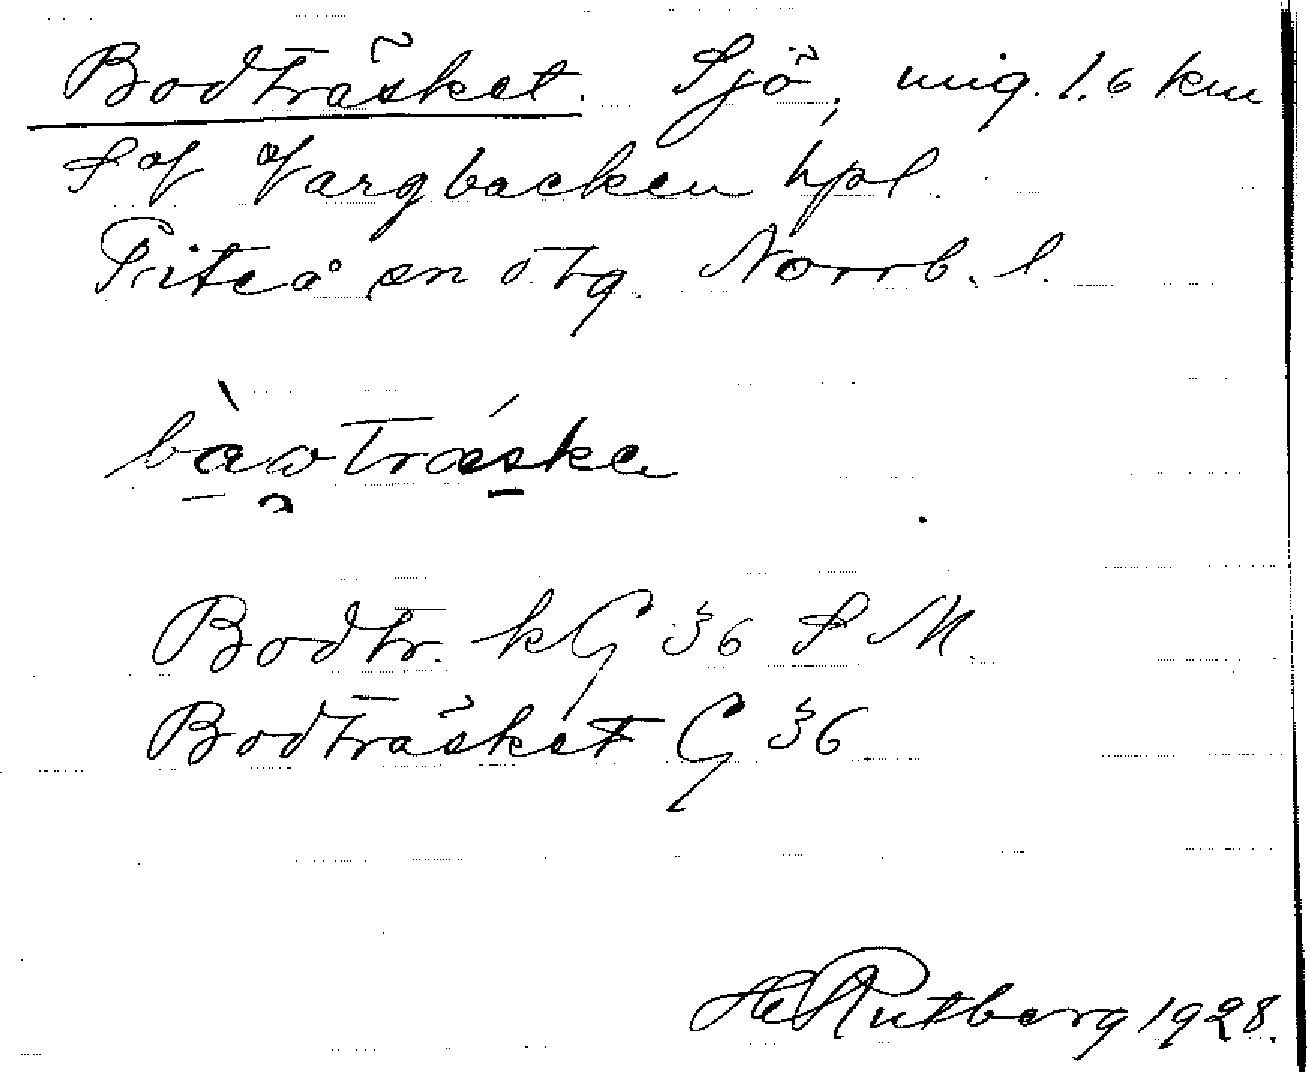 Bodträsket. Sjö, mig. 1.6 km
S of Vargbacken hpl.
Piteå sn o. tg. Norrb. l.
bàotráska
Bodtr. kG 36 S M.
Bodträsket G 36
H Rutberg 1928.